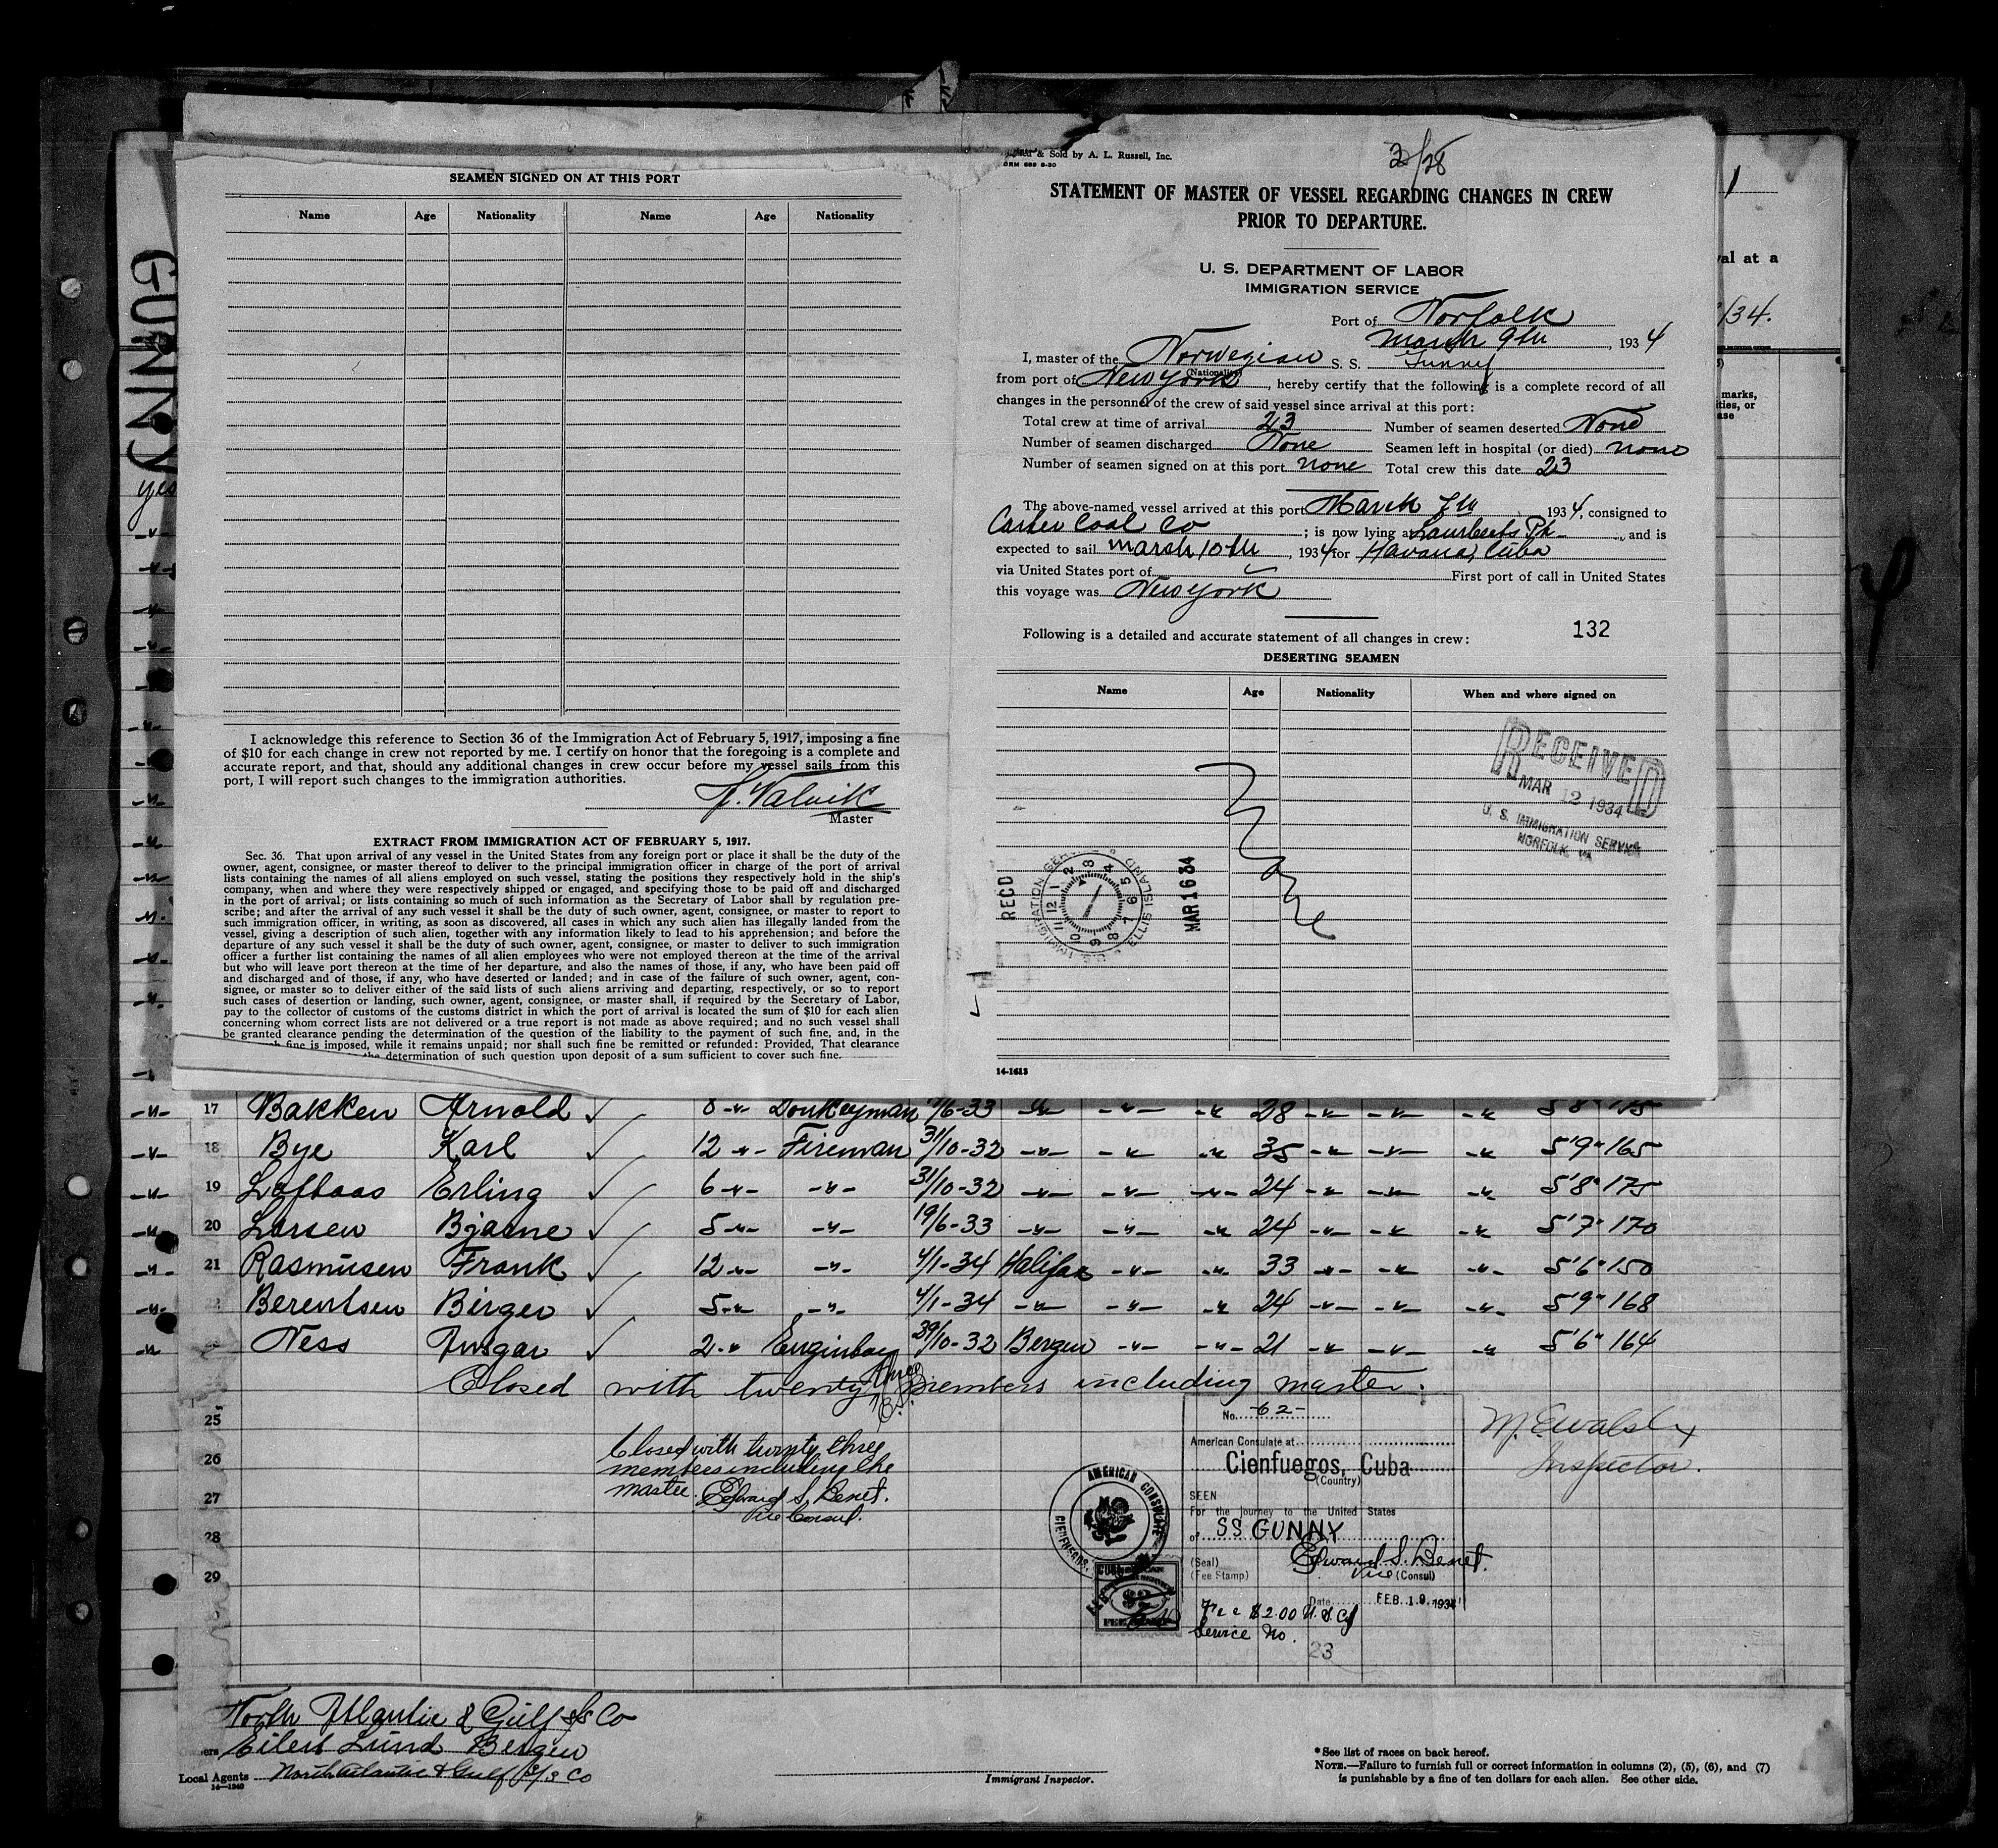 GUNNY
yes
SEAMEN SIGNED ON AT THIS PORT
Name Age Nationality Name Age Nationality
I acknowledge this reference to Section 36 of the Immigration Act of February 5, 1917, imposing a fine
of $10 for each change in crew not reported by me. I certify on honor that the foregoing is a complete and
accurate report, and that, should any additional changes in crew occur before my vessel sails from this
port, I will report such changes to the immigration authorities.
Master
EXTRACT FROM IMMIGRATION ACT OF FEBRUARY 5, 1917.
Sec. 36. That upon arrival of any vessel in the United States from any foreign port or place it shall be the duty of the
owner, agent, consignee, or master thereof to deliver to the principal immigration officer in charge of the port of arrival
lists containing the names of all aliens employed on such vessel, stating the positions they respectively hold in the ship's
company, when and where they were respectively shipped or engaged, and specifying those to be paid off and discharged
in the port of arrival; or lists containing so much of such information as the Secretary of Labor shall by regulation pre-
scribe; and after the arrival of any such vessel it shall be the duty of such owner, agent, consignee, or master to report to
such immigration officer, in writing, as soon as discovered, all cases in which any such alien has illegally landed from the
vessel, giving a description of such alien, together with any information likely to lead to his apprehension; and before the
departure of any such vessel it shall be the duty of such owner, agent, consignee, or master to deliver to such immigration
officer a further list containing the names of all alien employees who were not employed thereon at the time of the arrival
but who will leave port thereon at the time of her departure, and also the names of those, if any, who have been paid off
and discharged and of those, if any, who have deserted or landed; and in case of the failure of such owner, agent, con-
signee, or master so to deliver either of the said lists of such aliens arriving and departing, respectively, or so to report
such cases of desertion or landing, such owner, agent, consignee, or master shall, if required by the Secretary of Labor,
pay to the collector of customs of the customs district in which the port of arrival is located the sum of $10 for each alien
concerning whom correct lists are not delivered or a true report is not made as above required; and no such vessel shall
be granted clearance pending the determination of the question of the liability to the payment of such fine, and, in the
fine is imposed, while it remains unpaid; nor shall such fine be remitted or refunded: Provided, That clearance
the determination of such question upon deposit of a sum sufficient to cover such fine.
& Sold by A. L. Russell, Inc.
STATEMENT OF MASTER OF VESSEL REGARDING CHANGES IN CREW
PRIOR TO DEPARTURE.
U. S. DEPARTMENT OF LABOR
IMMIGRATION SERVICE
Port of Norfolk
March 9th, 1934
I, master of the Norwegian S. S. Gunny
(Nationality)
from port of New York, hereby certify that the following is a complete record of all
changes in the personnel of the crew of said vessel since arrival at this port:
Total crew at time of arrival 23 Number of seamen deserted None
Number of seamen discharged None Seamen left in hospital (or died) none
Number of seamen signed on at this port none Total crew this date 23
The above-named vessel arrived at this port March 7th 1934, consigned to
Carter Coal Co; is now lying at Lamberts Pt, and is
expected to sail March 10th, 1934 for Havana, Cuba
via United States port of First port of call in United States
this voyage was New York
Following is a detailed and accurate statement of all changes in crew:
132
DESERTING SEAMEN
Name Age Nationality When and where signed on
None
RECEIVED
MAR 12 1934
U. S. IMMIGRATION SERVICE
NORFOLK, VA
RECD
MAR 16 34
14-1613
1
val at a
/34.
marks,
ties, or
17 Bakken Arnold 8 -"- Donkeyman 9/6-33 -"- -"- -"- 28 -"- -"- -"- 5'8" 175
18 Bye Karl 12 -"- Fireman 31/10-32 -"- -"- -"- 35 -"- -"- -"- 5'9" 165
19 Loftaas Erling 6 -"- -"- 31/10-32 -"- -"- -"- 24 -"- -"- -"- 5'8" 175
20 Larsen Bjarne 5 -"- -"- 19/6-33 -"- -"- -"- 24 -"- -"- -"- 5'7" 170
21 Rasmüsen Frank 12 -"- -"- 4/1-34 Halifax -"- -"- 33 -"- -"- -"- 5'6" 150
22 Berentsen Birger 5 -"- -"- 4/1-34 -"- -"- -"- 24 -"- -"- -"- 5'9" 168
Ness Ansgar 2 -"- Enginboy 30/10-32 Bergen -"- -"- 21 -"- -"- -"- 5'6" 164
Closed with twenty three members including master.
25
26
27
28
29
Closed with twenty three
members including the
master. Edward S. Benet.
Vice Consul.
No. -62-
American Consulate at
Cienfuegos, Cuba
(Country)
SEEN
For the journey to the United States
of SS GUNNY
(Seal) Edward S. Benet.
(Fee Stamp) Vice (Consul)
Date FEB. 19. 1934
Fee $2.00 U.S. Cy
Service No.
23
AMERICAN CONSULATE
CIENFUEGOS,
$2
Inspector.
North Atlantic & Gulf S/S Co
Owners Eilert Lund Bergen
Local Agents North Atlantic & Gulf S/S Co
14-1240
Immigrant Inspector.
*See list of races on back hereof.
NOTE.—Failure to furnish full or correct information in columns (2), (5), (6), and (7)
is punishable by a fine of ten dollars for each alien. See other side.